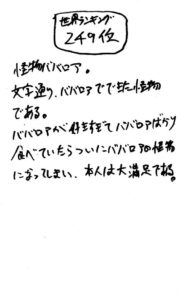 世界ランキング
249位
怪物ババロア。
文字通り、ババロアでできた怪物
である。
ババロアが好きすぎてババロアばかり
食べていたらついにババロアの怪物
になってしまい、本人は大満足である。